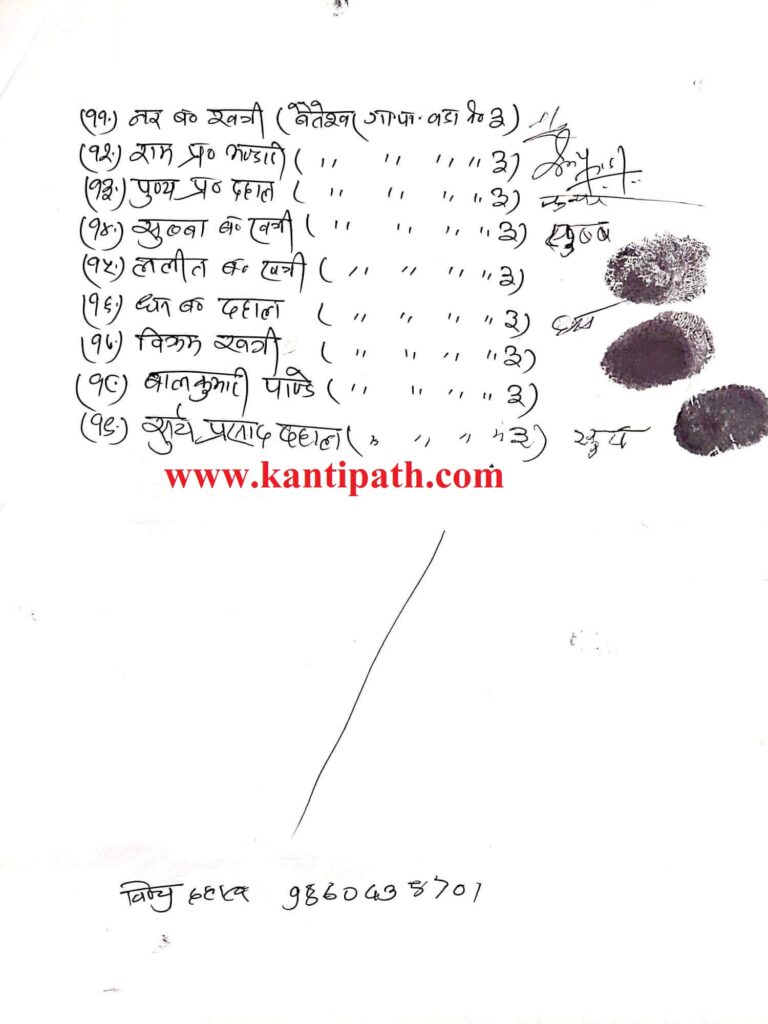 (११.) नर ब० खत्री (बैतेश्वर गा.पा. वडा नं० ३)
(१२.) राम प्र० भण्डारी ( " " " " ३)
(१३.) पुण्य प्र० दहाल ( " " " " ३)
(१४.) सुब्बा ब० खत्री ( " " " " ३) सुब्बा
(१५.) ललीत ब० खत्री ( " " " " ३)
(१६.) धन ब० दहाल ( " " " " ३) धन
(१७.) विक्रम खत्री ( " " " " ३)
(१८.) बालकुमारी पाण्डे ( " " " " ३)
(१९.) सुर्य प्रसाद दहाल ( " " " " ३) सुर्य
www.kantipath.com
दहाल 9860438701